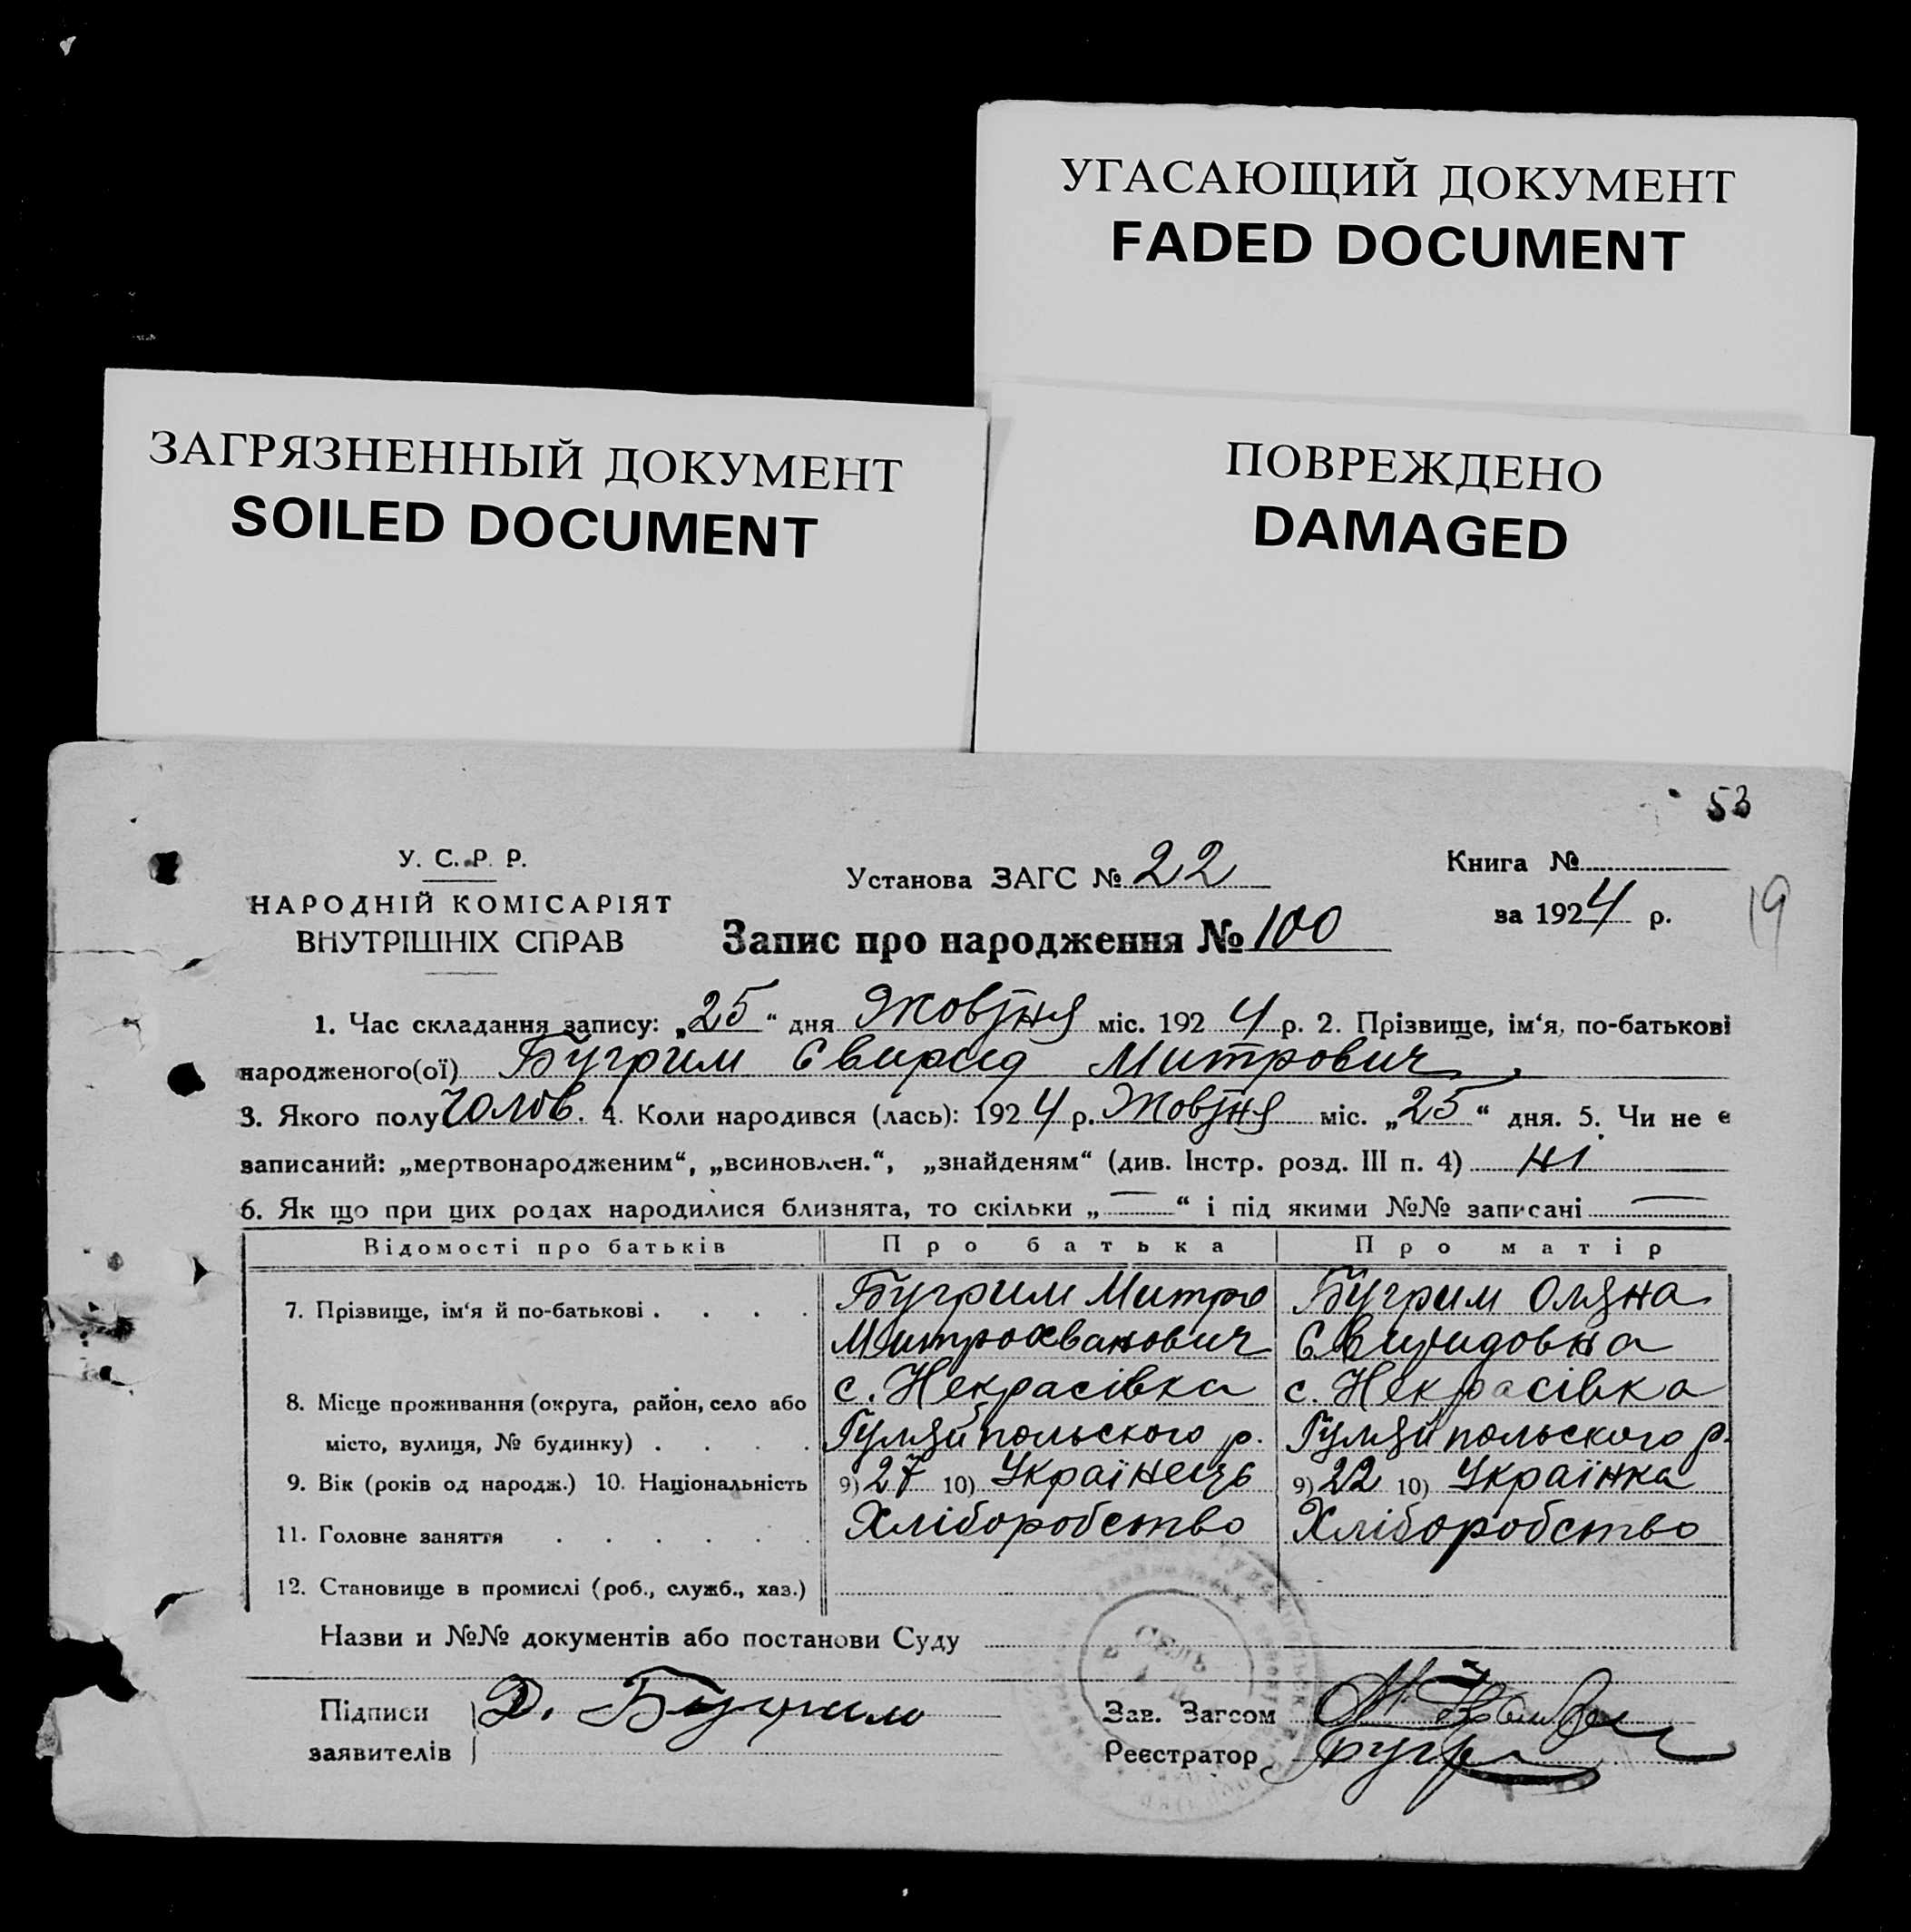 УГАСАЮЩИЙ ДОКУМЕНТ
FADED DOCUMENT
ЗАГРЯЗНЕННЫЙ ДОКУМЕНТ
SOILED DOCUMENT
ПОВРЕЖДЕНО
DAMAGED
53
У. С. Р. Р.
НАРОДНІЙ КОМІСАРІЯТ
ВНУТРІШНІХ СПРАВ
Установа ЗАГС № 22
Запис про народження № 100
Книга №
за 1924 р.
19
1. Час складання запису: „25“ дня Жовтня міс. 1924 р. 2. Прізвище, ім‘я, по-батькові
народженого(ої) Бугрим Євирид Митрович
3. Якого полу Чолов. 4. Коли народився (лась): 1924 р. Жовтня міс. „25“ дня. 5. Чи не є
записаний: „мертвонародженим“, „всиновлен.“, „знайденям“ (див. Інстр. розд. III п. 4) Ні
6. Як що при цих родах народилися близнята, то скільки „—“ і під якими №№ записані —
Відомості про батьків Про батька Про матір
7. Прізвище, ім‘я й по-батькові . . . . Бугрим Митро Бугрим Оляна
Митрохванович Євиридовна
с. Некрасівка с. Некрасівка
8. Місце проживання (округа, район, село або
місто, вулиця, № будинку) . . . . Гуляйпольского р. Гуляйпольского р.
9. Вік (років од народж.) 10. Національність 9) 27 10) Українець 9) 22 10) Українка
11. Головне заняття . . . . . . Хліборобство Хліборобство
12. Становище в промислі (роб., служб., хаз.)
Назви и №№ документів або постанови Суду
Підписи Д. Бугрим
заявителів
Зав. Загсом
Реєстратор Бугр